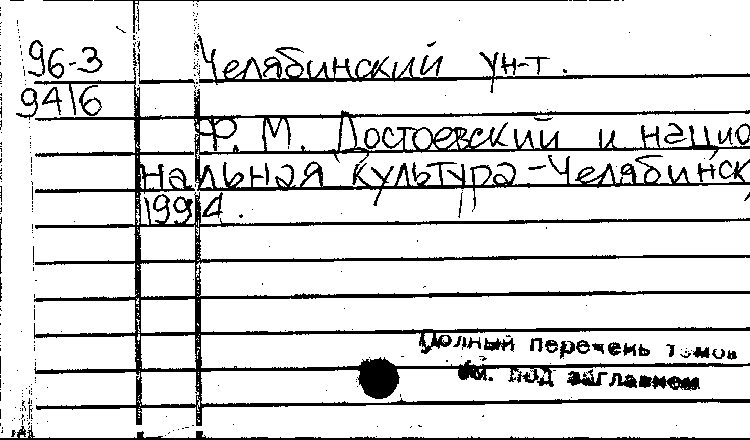 96-3
9416
Челябинский ун-т.
Ф. М. Достоевский и нацио
нальная культура.-Челябинск,
1994.
Полный перечень томов
см. под заглавием